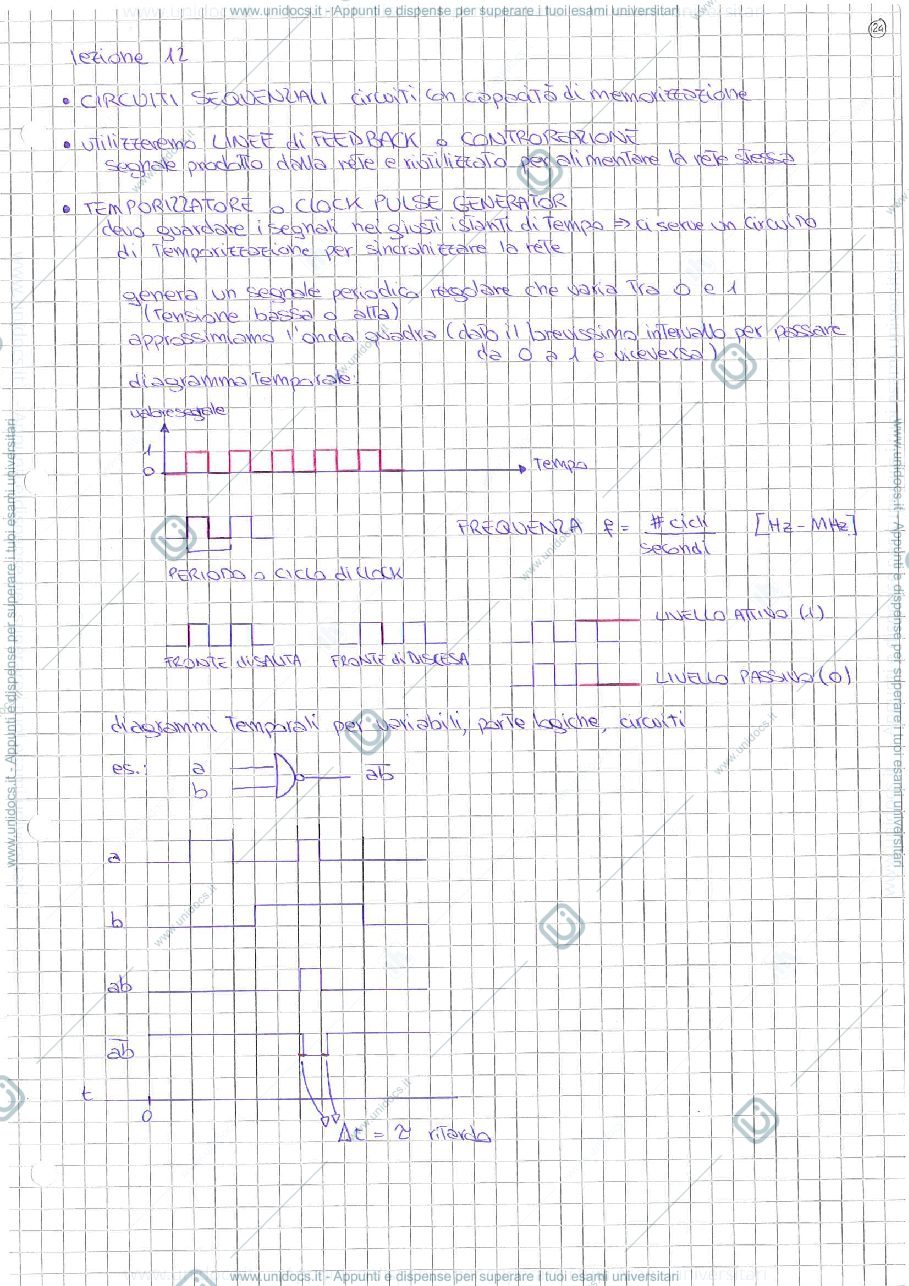 www.unidocs.it - Appunti e dispense per superare i tuoi esami universitari
24
lezione 12
• CIRCUITI SEQUENZIALI circuiti con capacità di memorizzazione
• utilizzeremo LINEE di FEEDBACK o CONTROREAZIONE
segnale prodotto dalla rete e riutilizzato per alimentare la rete stessa
• TEMPORIZZATORE o CLOCK PULSE GENERATOR
devo guardare i segnali nei giusti istanti di tempo ⇒ ci serve un circuito
di temporizzazione per sincronizzare la rete
genera un segnale periodico regolare che varia tra 0 e 1
(tensione bassa o alta)
approssimiamo l'onda quadra (dato il brevissimo intervallo per passare
da 0 a 1 e viceversa)
diagramma temporale:
valore segnale
1
0
tempo
FREQUENZA f = # cicli / secondi [Hz - MHz]
PERIODO o CICLO di CLOCK
LIVELLO ATTIVO (1)
FRONTE di SALITA FRONTE di DISCESA
LIVELLO PASSIVO (0)
diagrammi temporali per variabili, porte logiche, circuiti
es.: a
b
a̅b̅
a
b
ab
a̅b̅
t
0
Δt = τ ritardo
www.unidocs.it - Appunti e dispense per superare i tuoi esami universitari